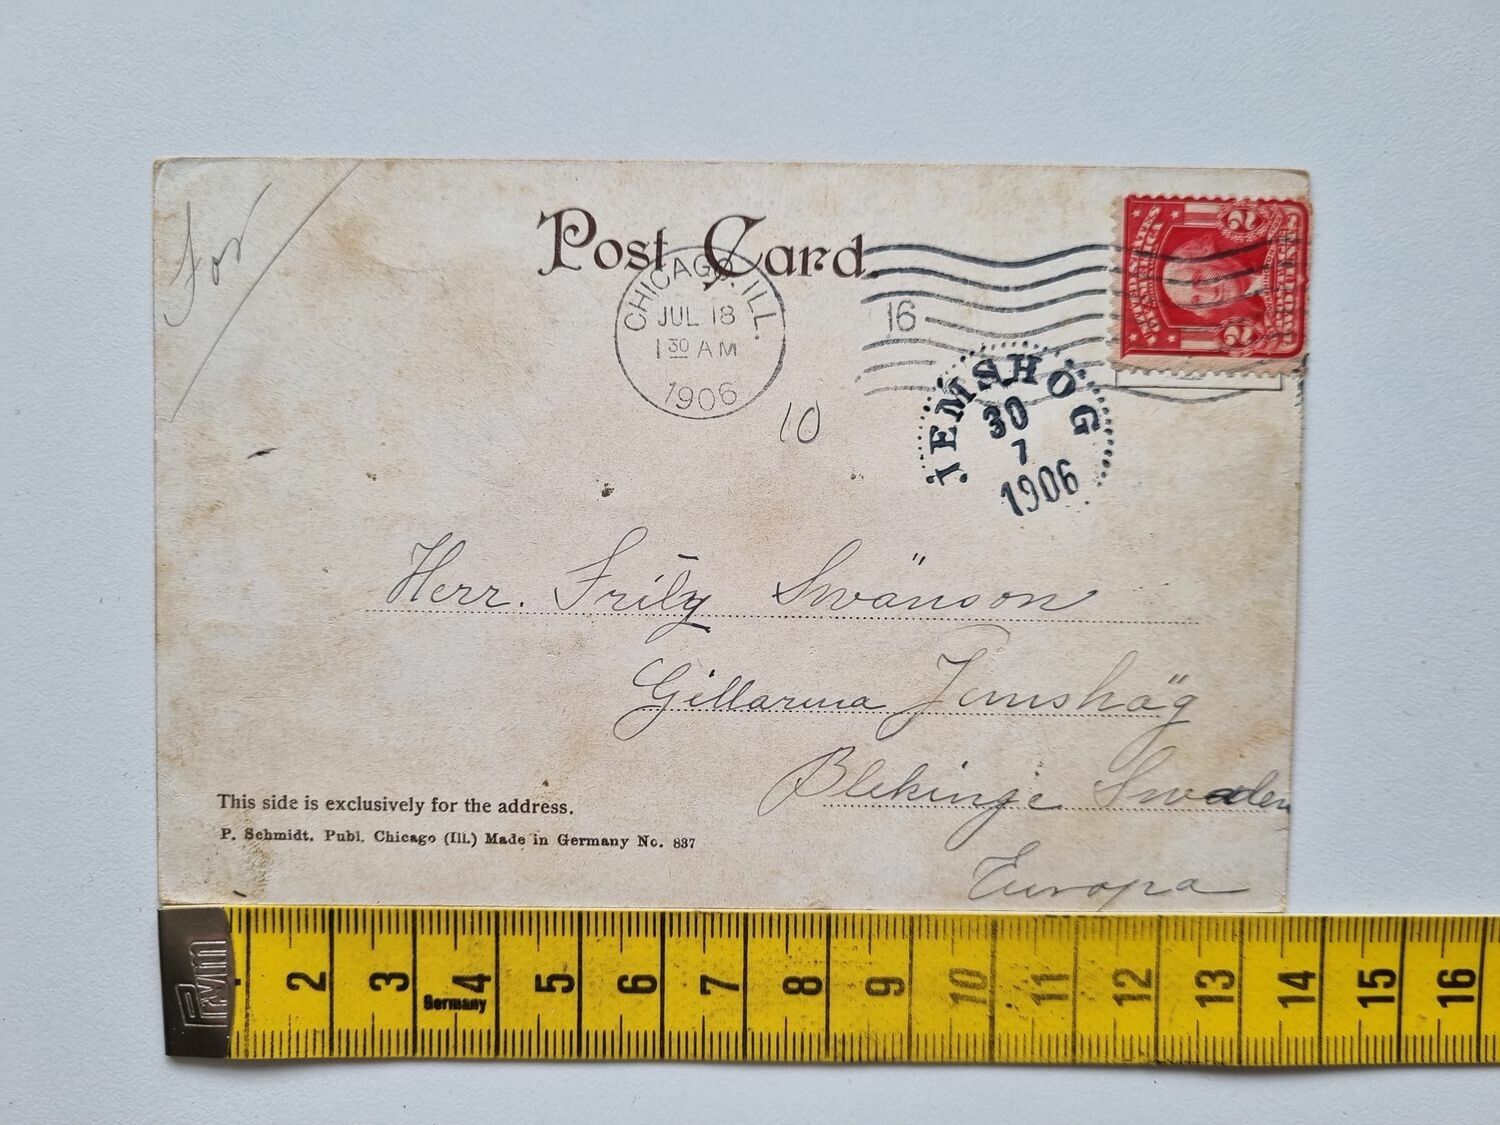 For
Post Card.
CHICAGO, ILL.
JUL 18
1 30 AM
1906
16
10
JEMSHÖG
30
7
1906
UNITED STATES
OF AMERICA
2 2
Herr. Fritz Swänson
Gillarina Jemshäg
Blekinge Sweden
Europa
This side is exclusively for the address.
P. Schmidt. Publ. Chicago (Ill.) Made in Germany No. 837
Prym
2 3 4 5 6 7 8 9 10 11 12 13 14 15 16
Germany